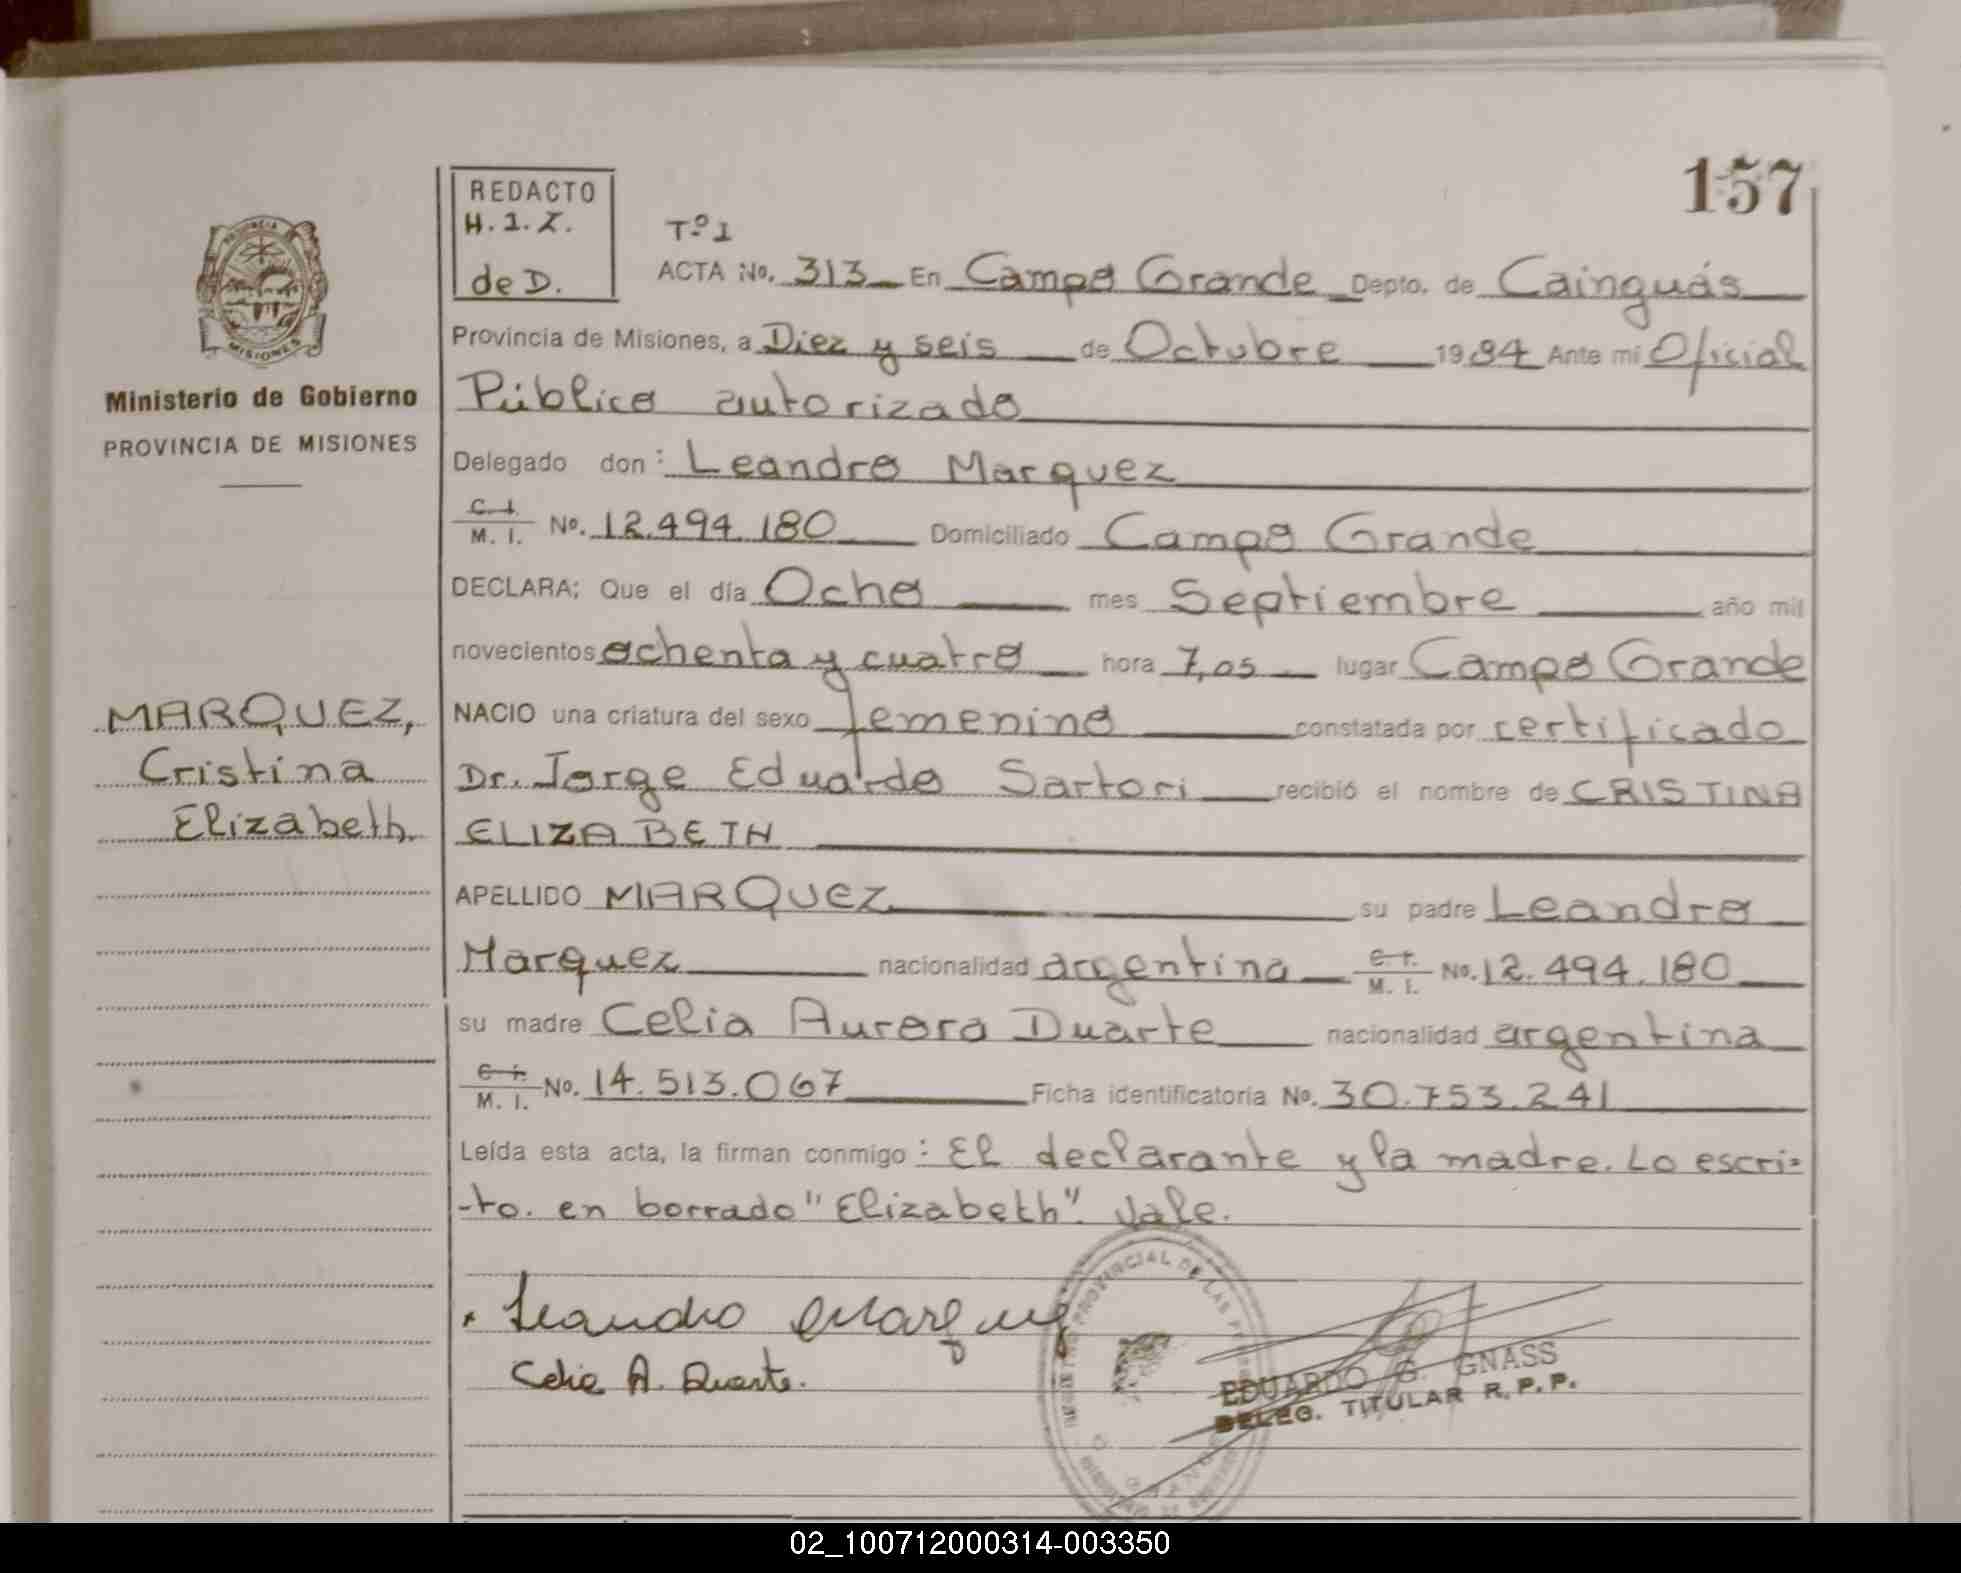 157
REDACTO
H.1.Z.
de D.
Tº 1
ACTA No. 313 En Campo Grande Depto. de Cainguás
Provincia de Misiones, a Diez y seis de Octubre 1984 Ante mi Oficial
Público autorizado
Delegado don: Leandro Marquez
C. I.
M. I. No. 12.494.180 Domiciliado Campo Grande
DECLARA; Que el día Ocho mes Septiembre año mil
novecientos ochenta y cuatro hora 7,05 lugar Campo Grande
NACIO una criatura del sexo femenino constatada por certificado
Dr. Jorge Eduardo Sartori recibió el nombre de CRISTINA
ELIZABETH
APELLIDO MARQUEZ su padre Leandro
Marquez nacionalidad argentina C. I. M. I. No. 12.494.180
su madre Celia Aurora Duarte nacionalidad argentina
C. I. M. I. No. 14.513.067 Ficha identificatoria No. 30.753.241
Leída esta acta, la firman conmigo: El declarante y la madre. Lo escri=
-to. en borrado "Elizabeth". Vale.
Leandro Marquez
Celia A. Duarte.
PROVINCIAL DE LAS
EDUARDO G. GNASS
DELEG. TITULAR R.P.P.
PROVINCIA
MISIONES
Ministerio de Gobierno
PROVINCIA DE MISIONES
MARQUEZ,
Cristina
Elizabeth.
02_100712000314-003350